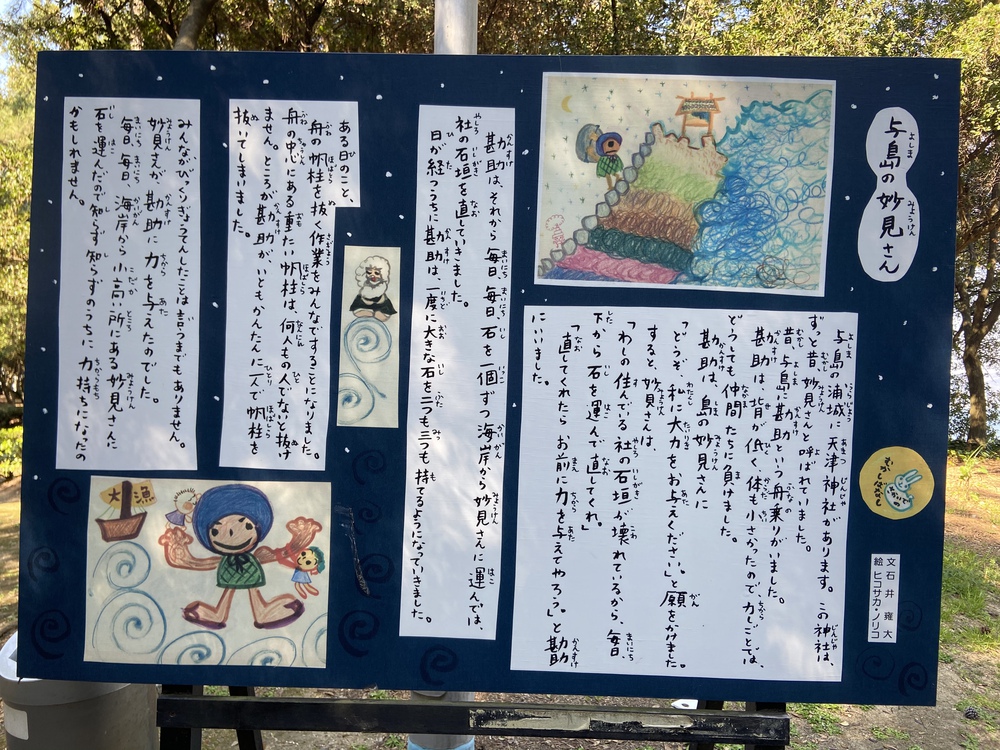 与島の妙見さん
与島の浦城に天津神社があります。この神社は、
ずっと昔妙見さんと呼ばれていました。
昔、与島に勘助という舟乗りがいました。
勘助は、背が低く、体も小さかったので、力しごとでは、
どうしても仲間たちに負けました。
勘助は、島の妙見さんに
「どうぞ、私に大力をお与えください」と願をかけました。
すると、妙見さんは、
「わしの住んでいる社の石垣が壊れているから、毎日、
下から石を運んで直してくれ。
「直してくれたらお前に力を与えてやろう」と勘助
にいいました。
勘助は、それから毎日、毎日石を一個ずつ海岸から妙見さんに運んでは、
社の石垣を直していきました。
日が経つうちに勘助は、一度に大きな石を二つも三つも持てるようになっていきました。
ある日のこと、
舟の帆柱を抜く作業をみんなですることになりました。
舟の中心にある重たい帆柱は、何人もの人でないと抜け
ません。ところが勘助が、いともかんたんに一人で帆柱を
抜いてしまいました。
みんながびっくりぎょうてんしたことは言うまでもありません。
妙見さんが、勘助に力を与えたのでした。
毎日、毎日、海岸から小高い所にある妙見さんに
石を運んだので知らず知らずのうちに、力持ちになったの
かもしれません。
大漁
文 石井 雍大
絵 ヒコサカ・ノリコ